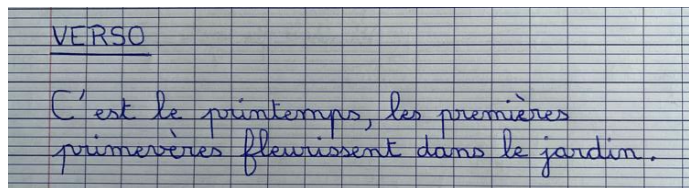 VERSO
C'est le printemps, les premières
primevères fleurissent dans le jardin.